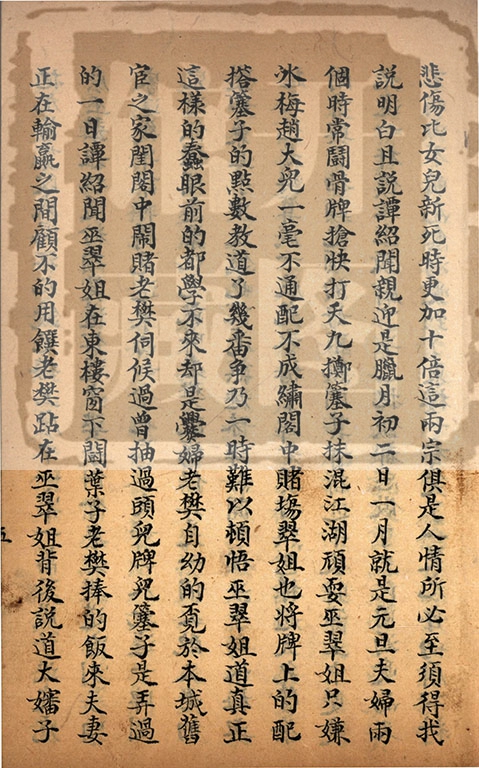 悲傷比女兒新死時更加十倍這兩宗俱是人情所必至須得我
說明白且説譚紹聞親迎是臘月初二日一月就是元旦夫婦兩
個時常鬪骨牌搶快打天九擲簺子抹混江湖頑耍巫翠姐只嫌
冰梅趙大兒一毫不通配不成繡閣中賭塲翠姐也將牌上的配
搭簺子的㸃數教道了幾番争乃一時難以頓悟巫翠姐道真正
這樣的蠢眼前的都學不來却是爨婦老樊自幼的賣於本城舊
宦之家閨閣中鬧賭老樊伺候過曾抽過頭兒牌兒簺子是弄過
的一日譚紹聞巫翠姐在東樓窗下鬪葉子老樊捧的飯來夫妻
正在輸贏之間顧不的用饌老樊跕在巫翠姐背後説道大嬸子
五